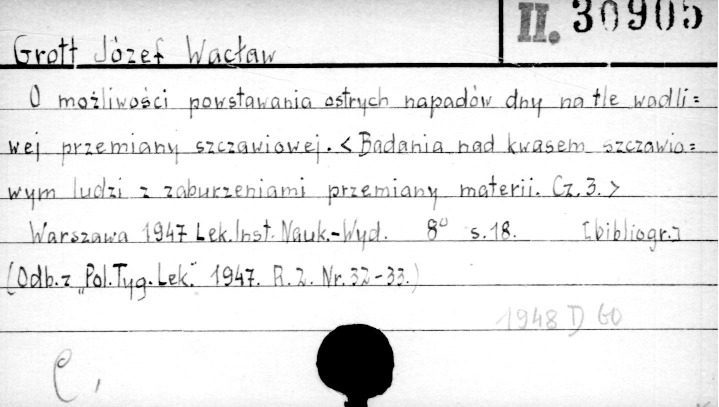 II. 30905
Grott Józef Wacław
O możliwości powstawania ostrych napadów dny na tle wadli=
wej przemiany szczawiowej. < Badania nad kwasem szczawio=
wym ludzi z zaburzeniami przemiany materii. Cz. 3. >
Warszawa 1947 Lek. Inst. Nauk.-Wyd. 8° s. 18. [bibliogr.]
(Odb. z „Pol. Tyg. Lek." 1947. R. 2. Nr. 32-33.)
1948 D 60
C,